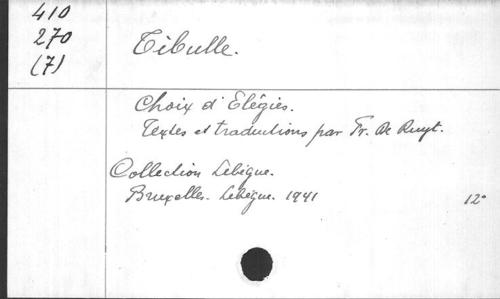 410
270
(7)
Tibulle.
Choix d'Elégies.
Textes et traductions par Fr. De Ruyt.
Collection Lebègue.
Bruxelles. Lebègue. 1941
12°